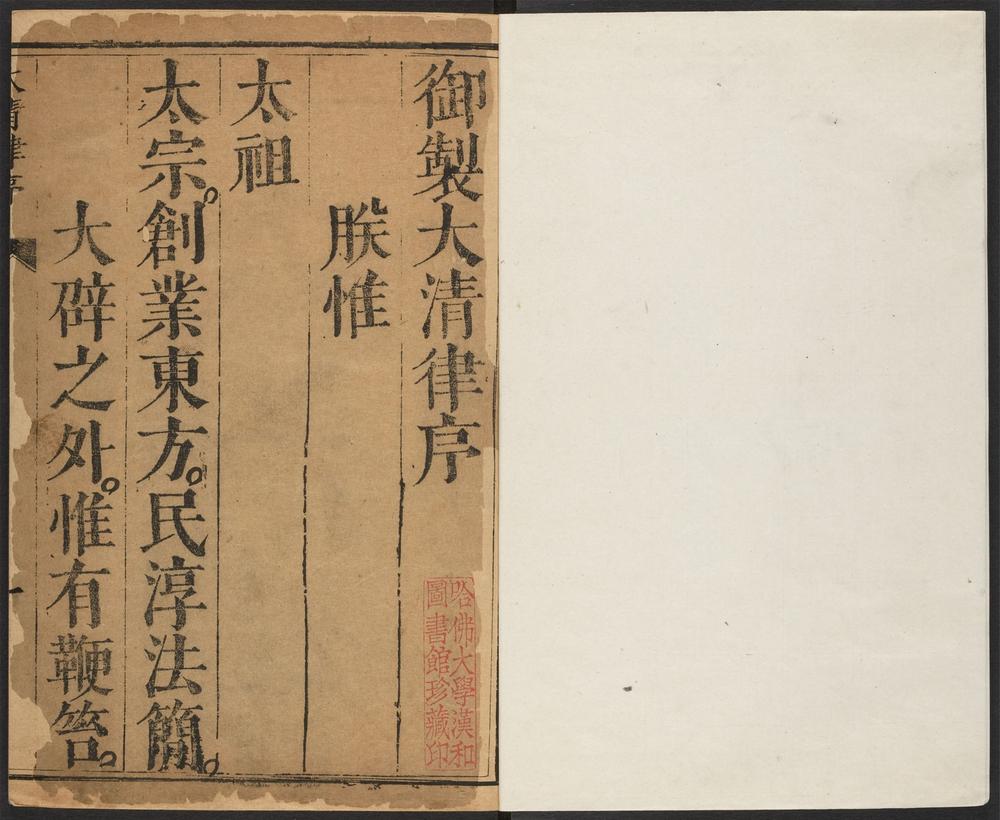 御製大清律序
朕惟
太祖
太宗。創業東方。民淳法簡。
大辟之外。惟有鞭笞。
大清律序
一
哈佛大學漢和
圖書館珍藏印